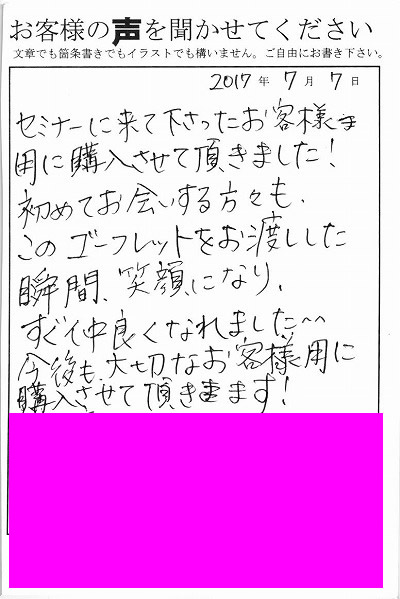 お客様の声を聞かせてください
文章でも箇条書きでもイラストでも構いません。ご自由にお書き下さい。
2017年 7月 7日
セミナーに来て下さったお客様ま
用に購入させて頂きました!
初めてお会いする方々も、
このゴーフレットをお渡しした
瞬間、笑顔になり、
すぐ仲良くなれました^^
今後も、大切なお客様用に
購入させて頂きます!